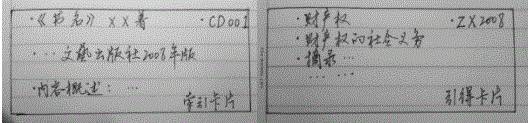 ·《书名》 XX著 ·CD001
·… 文艺出版社2008年版
·内容概述： …
索引卡片
·财产权 ·ZX2008
·财产权的社会义务
·摘录…
… …
引得卡片